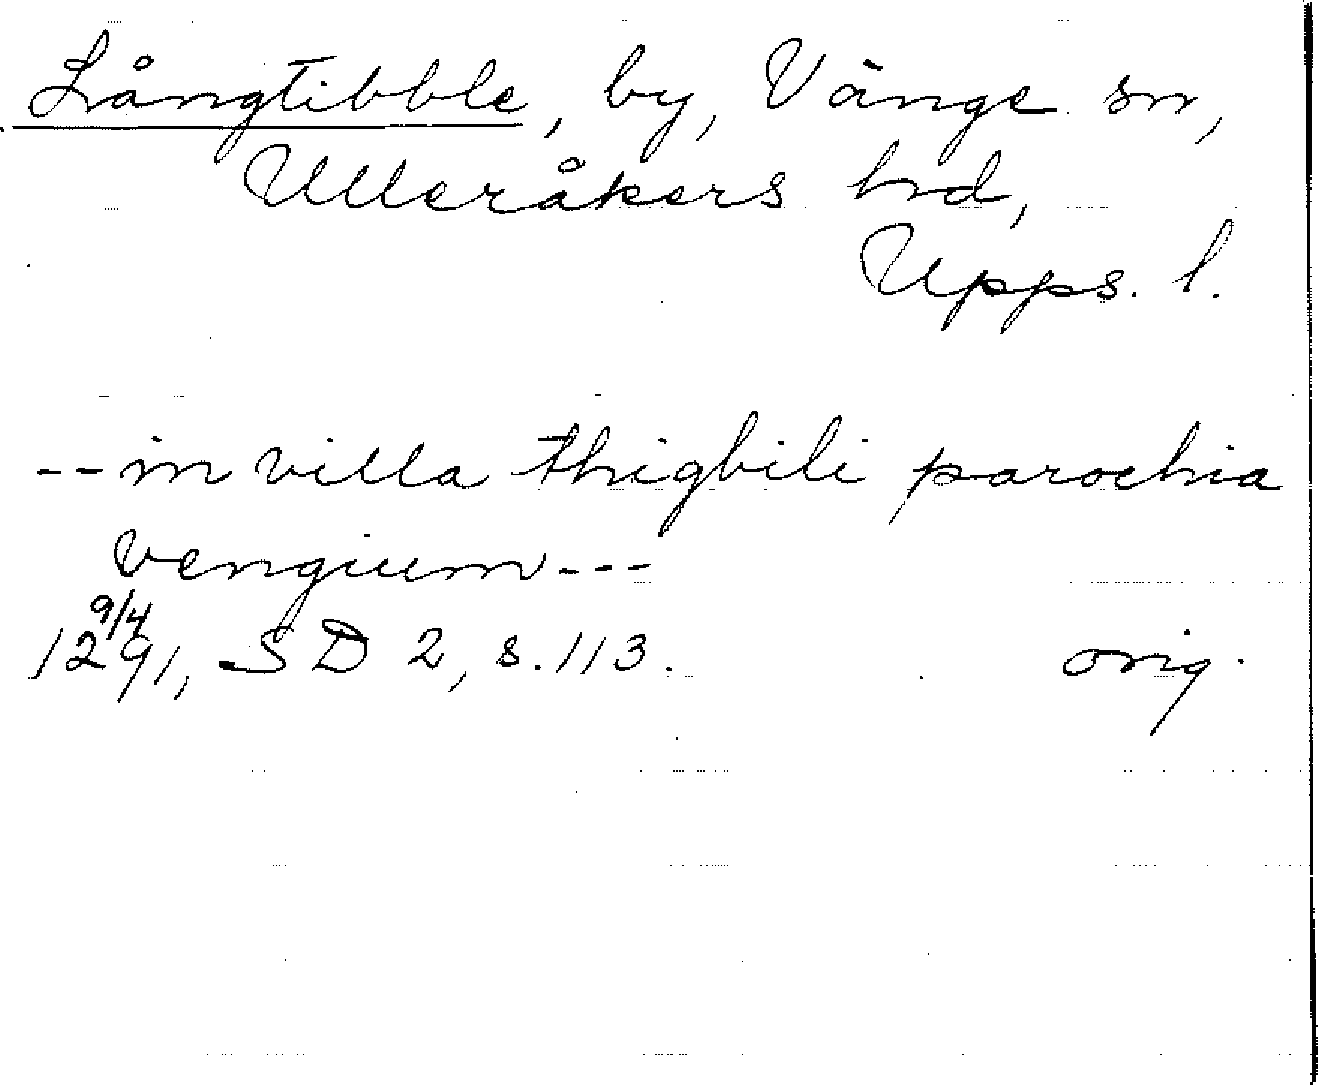 Långtibble, by, Vänge sn,
Ulleråkers hrd,
Upps. l.
-- in villa thigbili parochia
vengium ---
9/4
1291, SD 2, s. 113. orig.